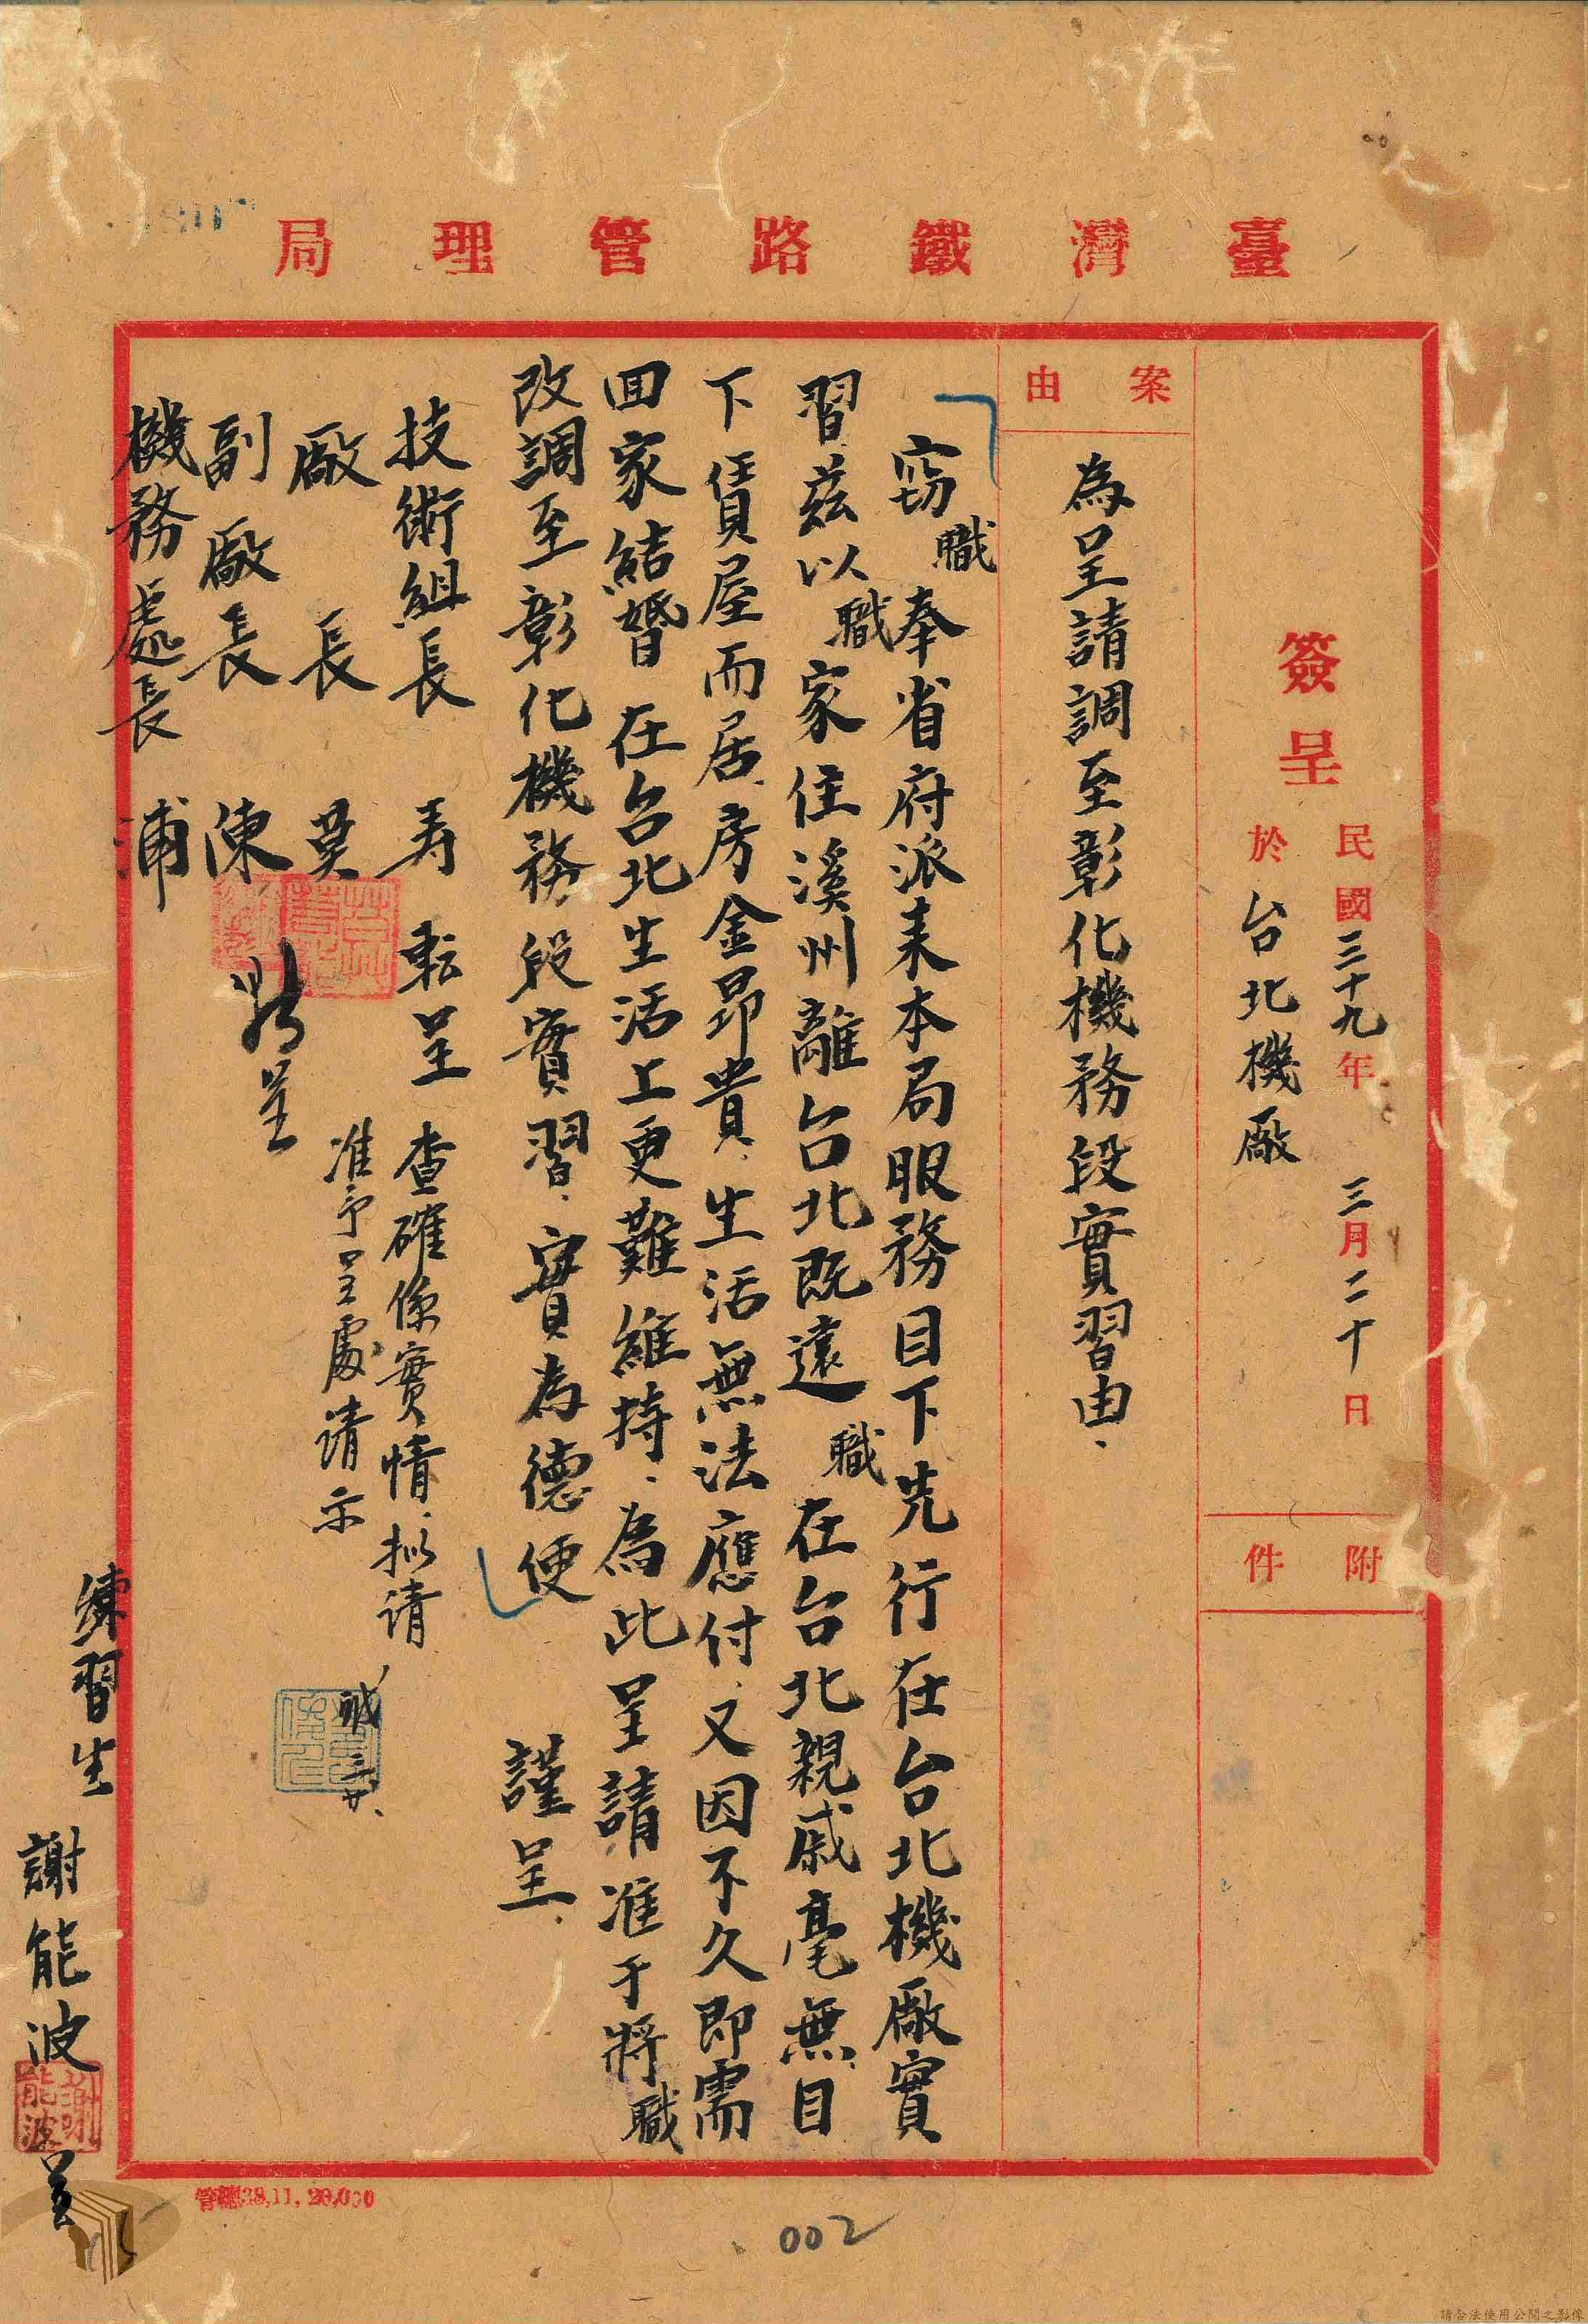 臺灣鐵路管理局
簽呈
民國三十九年三月二十日
於台北機廠
附件
案由
為呈請調至彰化機務段實習由、
竊職奉省府派来本局服務目下先行在台北機廠實
習、茲以職家住溪州離台北既遠職在台北親戚毫無、目
下賃屋而居、房金昂貴、生活無法應付、又因不久即需
回家結婚在台北生活上更難維持、為此呈請准于將職
改調至彰化機務段實習、實為德便謹呈、
技術組長壽転呈
廠長莫
副廠長陳
機務處長浦
查確係實情、拟请
准予呈處请示
職
練習生謝能波呈
謝能波
管總38,11,20,000
002
請合法使用公開之影像